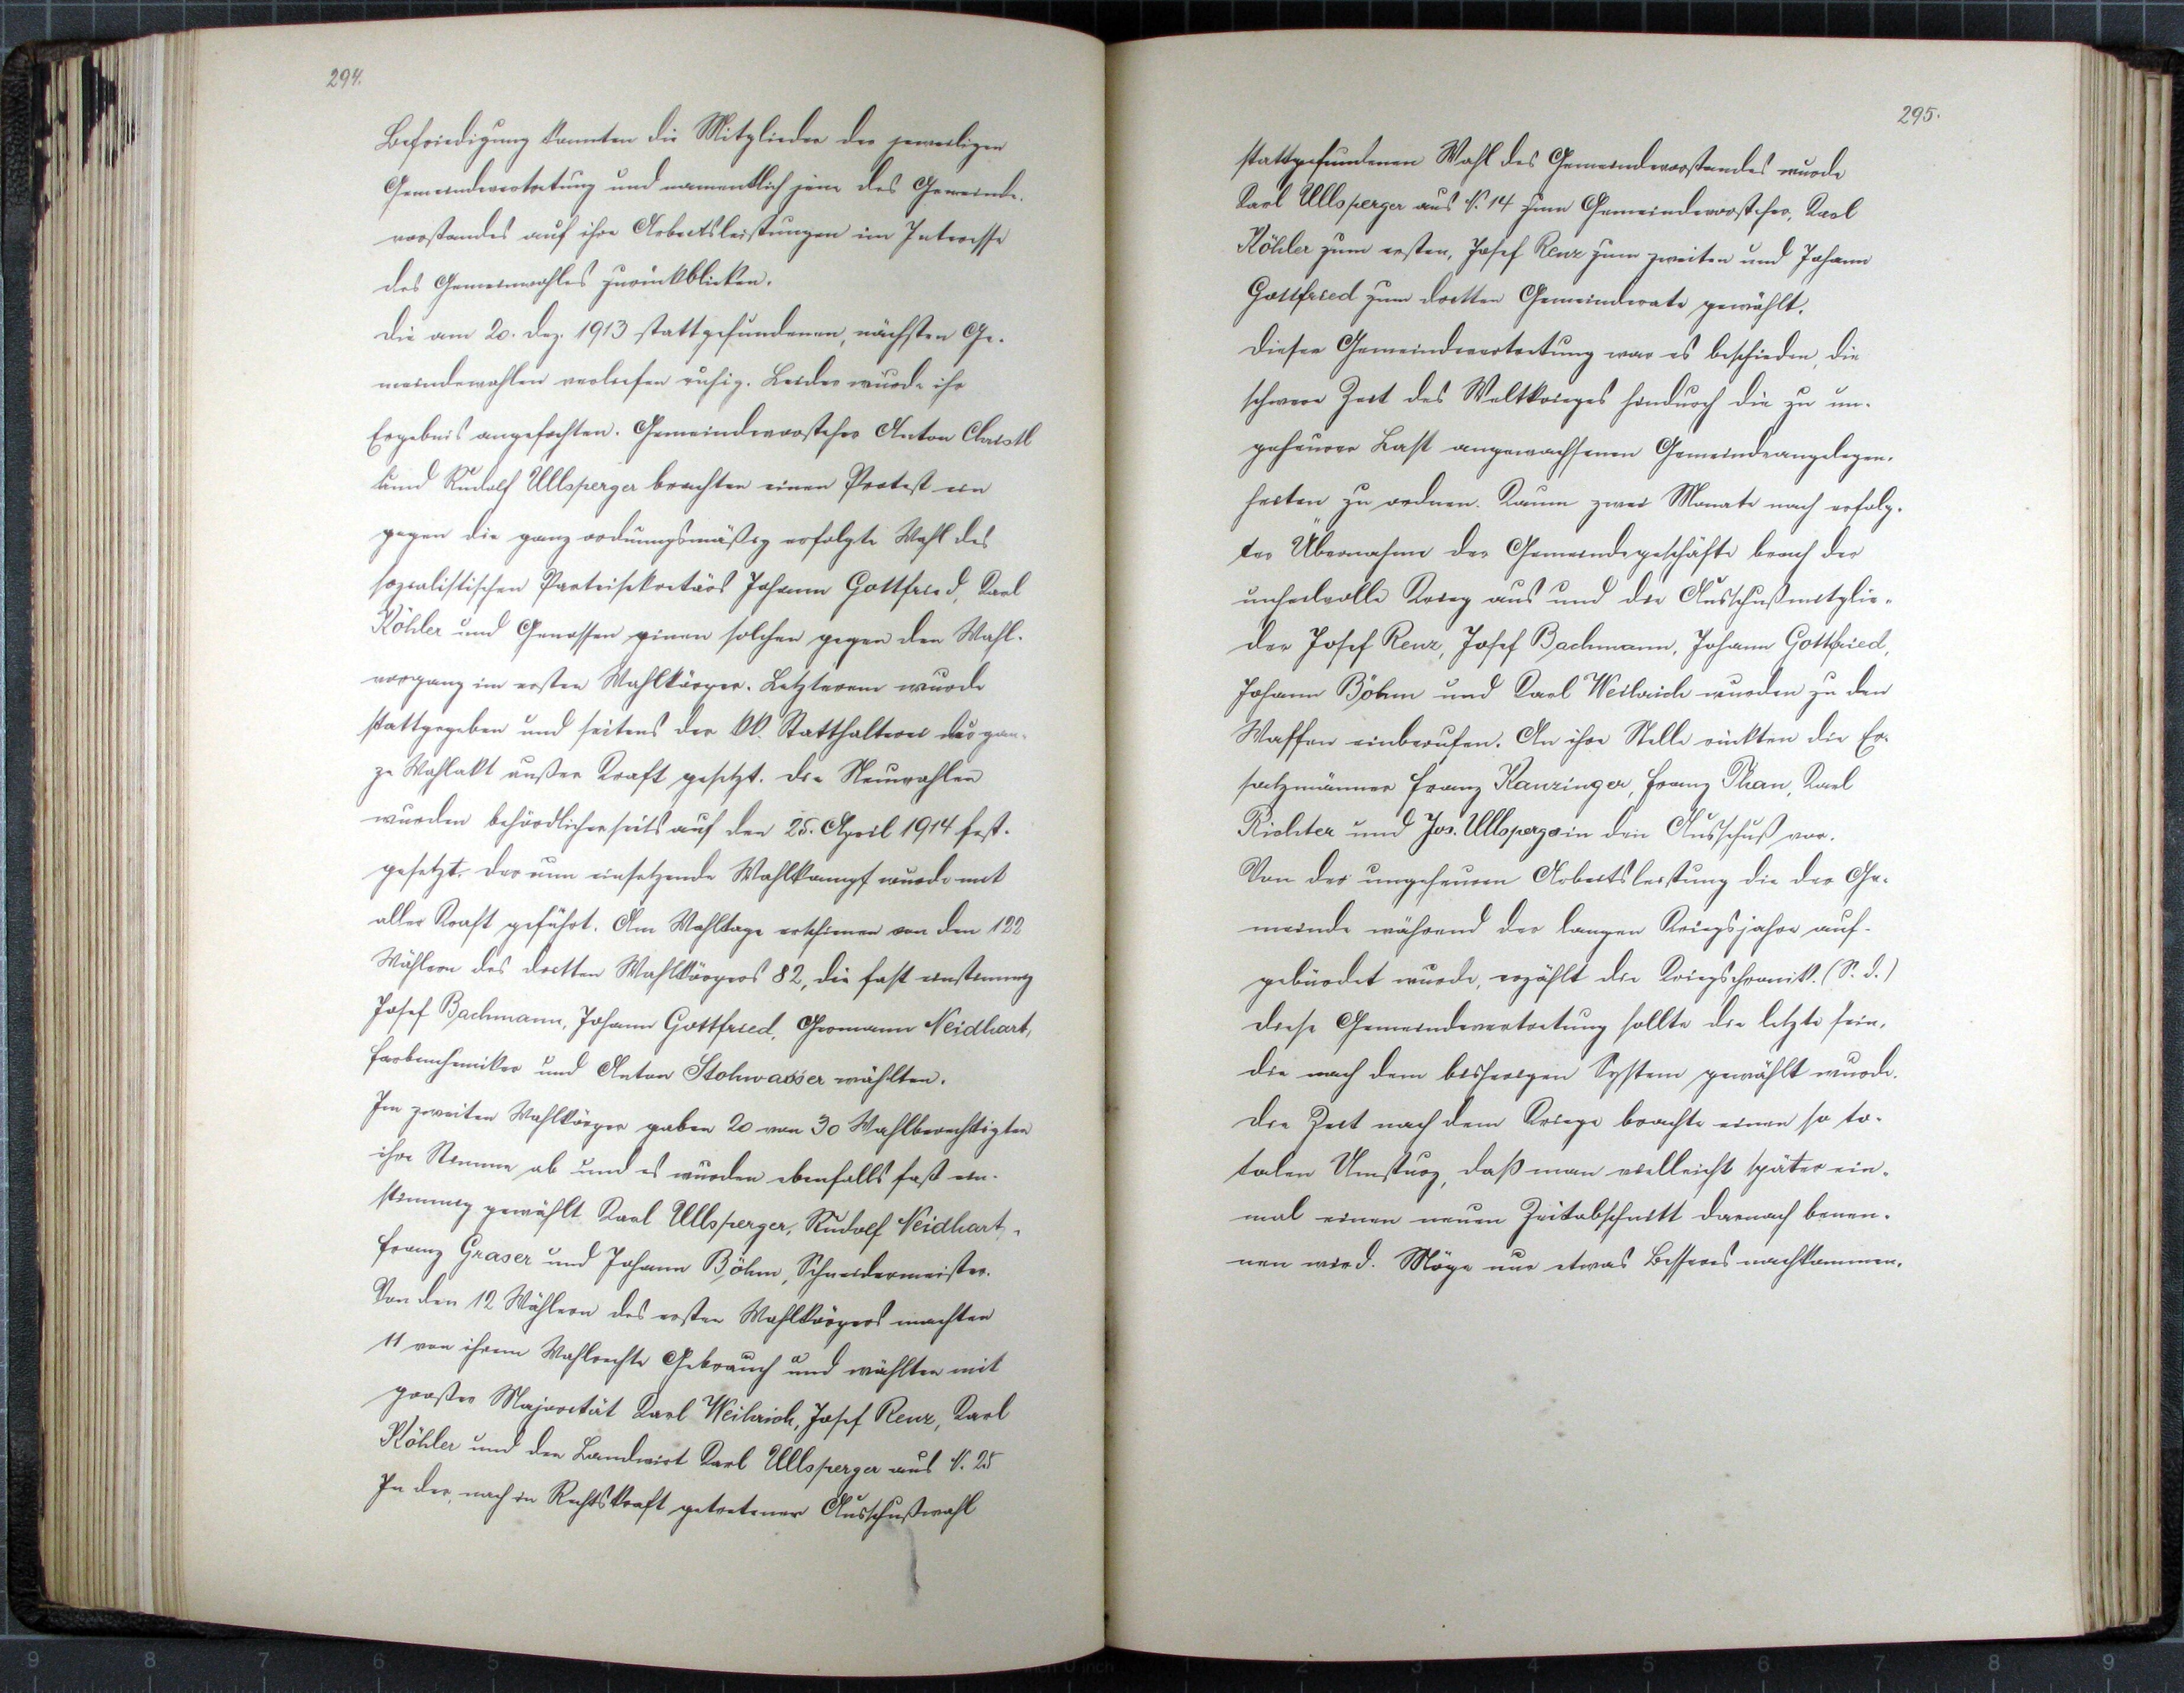 294.
Befriedigung konnten die Mitglieder der jeweiligen
Gemeindevertretung und namentlich jene des Gemeinde-
vorstandes auf ihre Arbeitsleistungen im Interesse
des Gemeinwohles zurückblicken.
Die am 20. Dez. 1913 stattgefundenen, nächsten Ge-
meindewahlen verliefen ruhig. Leider wurde ihr
Ergebnis angefochten. Gemeindevorsteher Anton Christl
und Rudolf Ullsperger brachten einen Protest ein
gegen die ganz ordnungsmäßig erfolgte Wahl des
sozialistischen Parteisekretärs Johann Gottfried, Karl
Köhler und Genossen einen solchen gegen den Wahl-
vorgang im ersten Wahlkörper. Letzterem wurde
stattgegeben und seitens der kk. Statthalterei der gan-
ze Wahlakt außer Kraft gesetzt. Die Neuwahlen
wurden behördlicherseits auf den 25. April 1914 fest-
gesetzt. Der nun einsetzende Wahlkampf wurde mit
aller Kraft geführt. Am Wahltage erschienen von den 122
Wählern des dritten Wahlkörpers 82, die fast einstimmig
Josef Bachmann, Johann Gottfried, Hermann Neidhart,
Farbenchemiker und Anton Stohwasser wählten.
Im zweiten Wahlkörper gaben 20 von 30 Wahlberechtigten
ihre Stimme ab und es wurden ebenfalls fast ein-
stimmig gewählt Karl Ullsperger, Rudolf Neidhart,
Franz Graser und Johann Böhm, Schneidermeister.
Von den 12 Wählern des ersten Wahlkörpers machten
11 von ihrem Wahlrechte Gebrauch und wählten mit
großer Majorität Karl Weilrich, Josef Renz, Karl
Köhler und den Landwirt Karl Ullsperger aus N. 25
In der, nach in Rechtskraft getretener Ausschußwahl
295.
stattgefundenen Wahl des Gemeindevorstandes wurde
Karl Ullsperger aus N. 14 zum Gemeindevorsteher, Karl
Köhler zum ersten, Josef Renz zum zweiten und Johann
Gottfried zum dritten Gemeinderate gewählt.
Dieser Gemeindevertretung war es beschieden, die
schwere Zeit des Weltkrieges hindurch die zu un-
geheurer Last angewachsenen Gemeindeangelegen-
heiten zu ordnen. Kaum zwei Monate nach erfolg-
ter Übernahme der Gemeindegeschäfte brach der
unheilvolle Krieg aus und die Ausschußmitglie-
der Josef Renz, Josef Bachmann, Johann Gottfried,
Johann Böhm und Karl Weilrich wurden zu den
Waffen einberufen. An ihre Stelle rückten die Er-
satzmänner Franz Kanzinger, Franz Than, Karl
Richter und Jos. Ullsperger in den Ausschuß vor.
Von der ungeheuren Arbeitsleistung die der Ge-
meinde während der langen Kriegsjahre auf-
gebürdet wurde, erzählt die Kriegschronik. (S. d.)
Diese Gemeindevertretung sollte die letzte sein,
die nach dem bisherigen System gewählt wurde.
Die Zeit nach dem Kriege brachte einen so to-
talen Umsturz, daß man vielleicht später ein-
mal einen neuen Zeitabschnitt darnach benen-
nen wird. Möge nur etwas Besseres nachkommen.